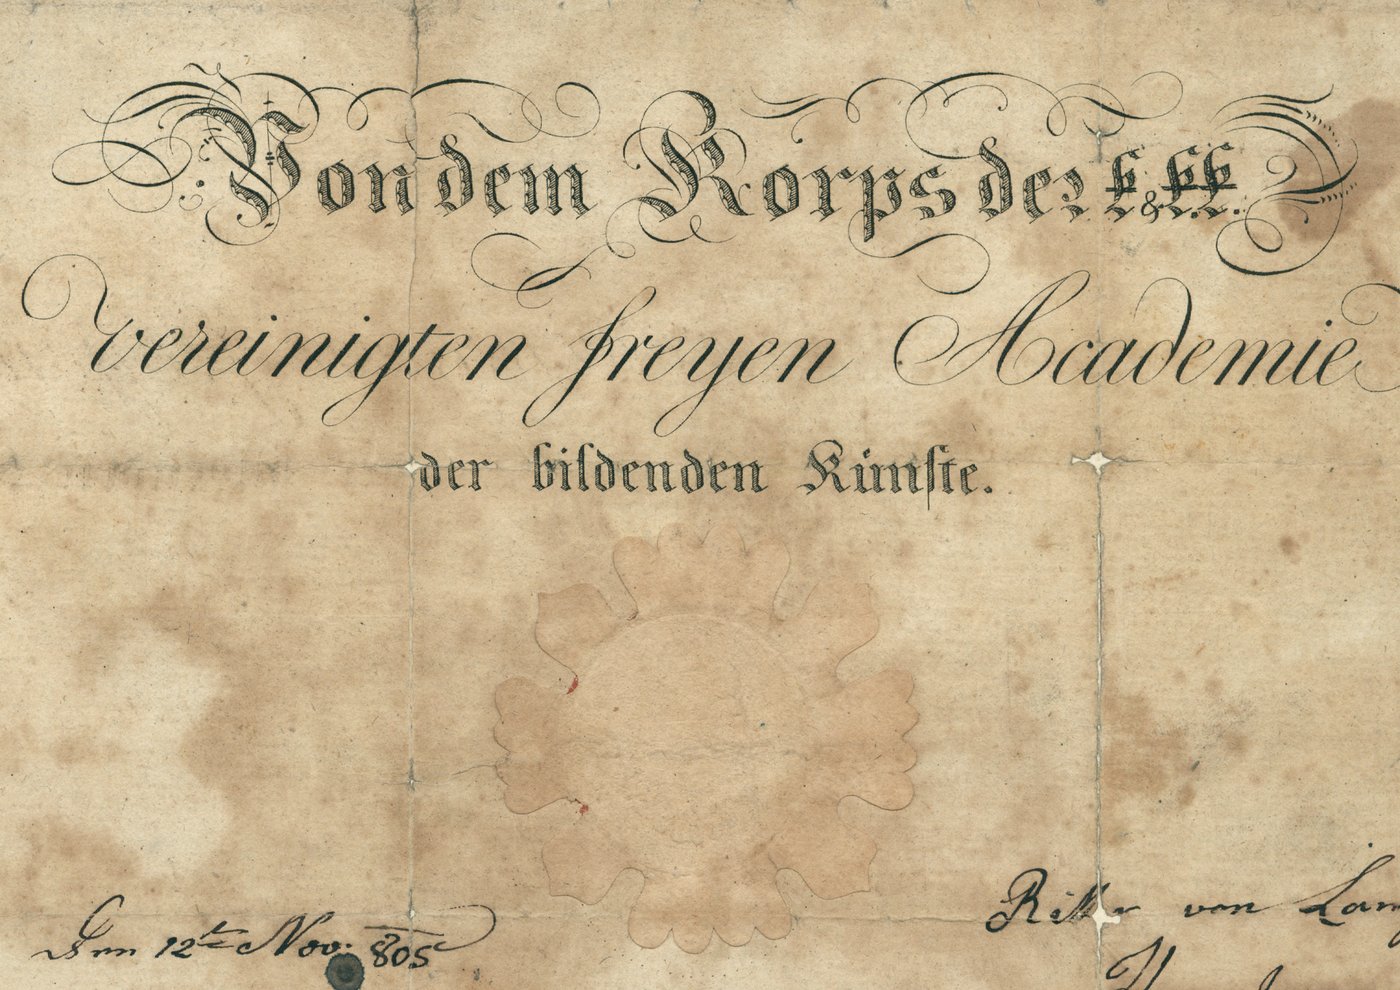 Von dem Korps der k. & k.k.
vereinigten freyen Academie
der bildenden Künste.
Den 12te Nov. 805
Ritter von Lam